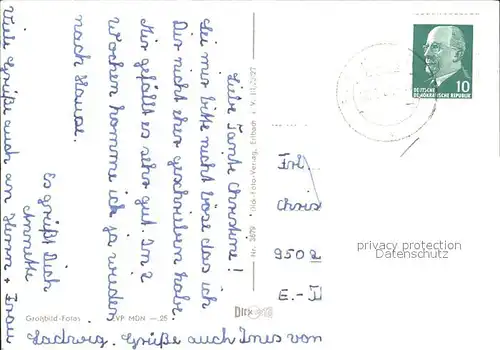 Liebe Tante Christine!
Sei mir bitte nicht böse das ich
Dir nicht eher geschrieben habe.
Mir gefällt es sehr gut. In 2
Wochen komme ich ja wieder
nach Hause.
Es grüßt Dich
Annette
Viele Grüße auch an Herrn + Frau
Ladwig. Grüße auch Ines von
Großbild-Fotos
EVP MDN —.25
Nr. 3879
Bild-Foto-Verlag, Erlbach i. V.
DEUTSCHE
DEMOKRATISCHE REPUBLIK
10
Frl.
Chris
9502
E.-
privacy protection
Datenschutz